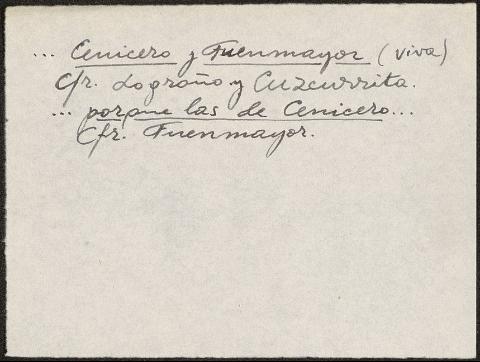 ... Cenicero y Fuenmayor (viva)
Cfr. Logroño y Cuzcurrita.
... porque las de Cenicero...
Cfr. Fuenmayor.